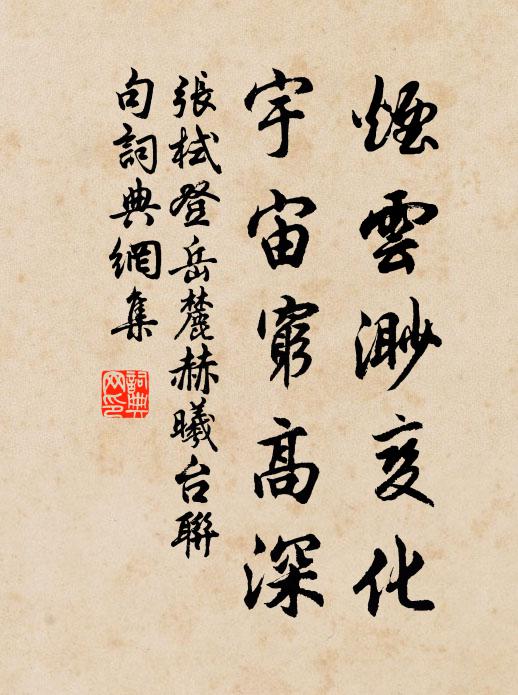 煙雲渺變化
宇宙窮高深
張栻登岳麓赫曦台聯
句詞典網集
詞典
网印